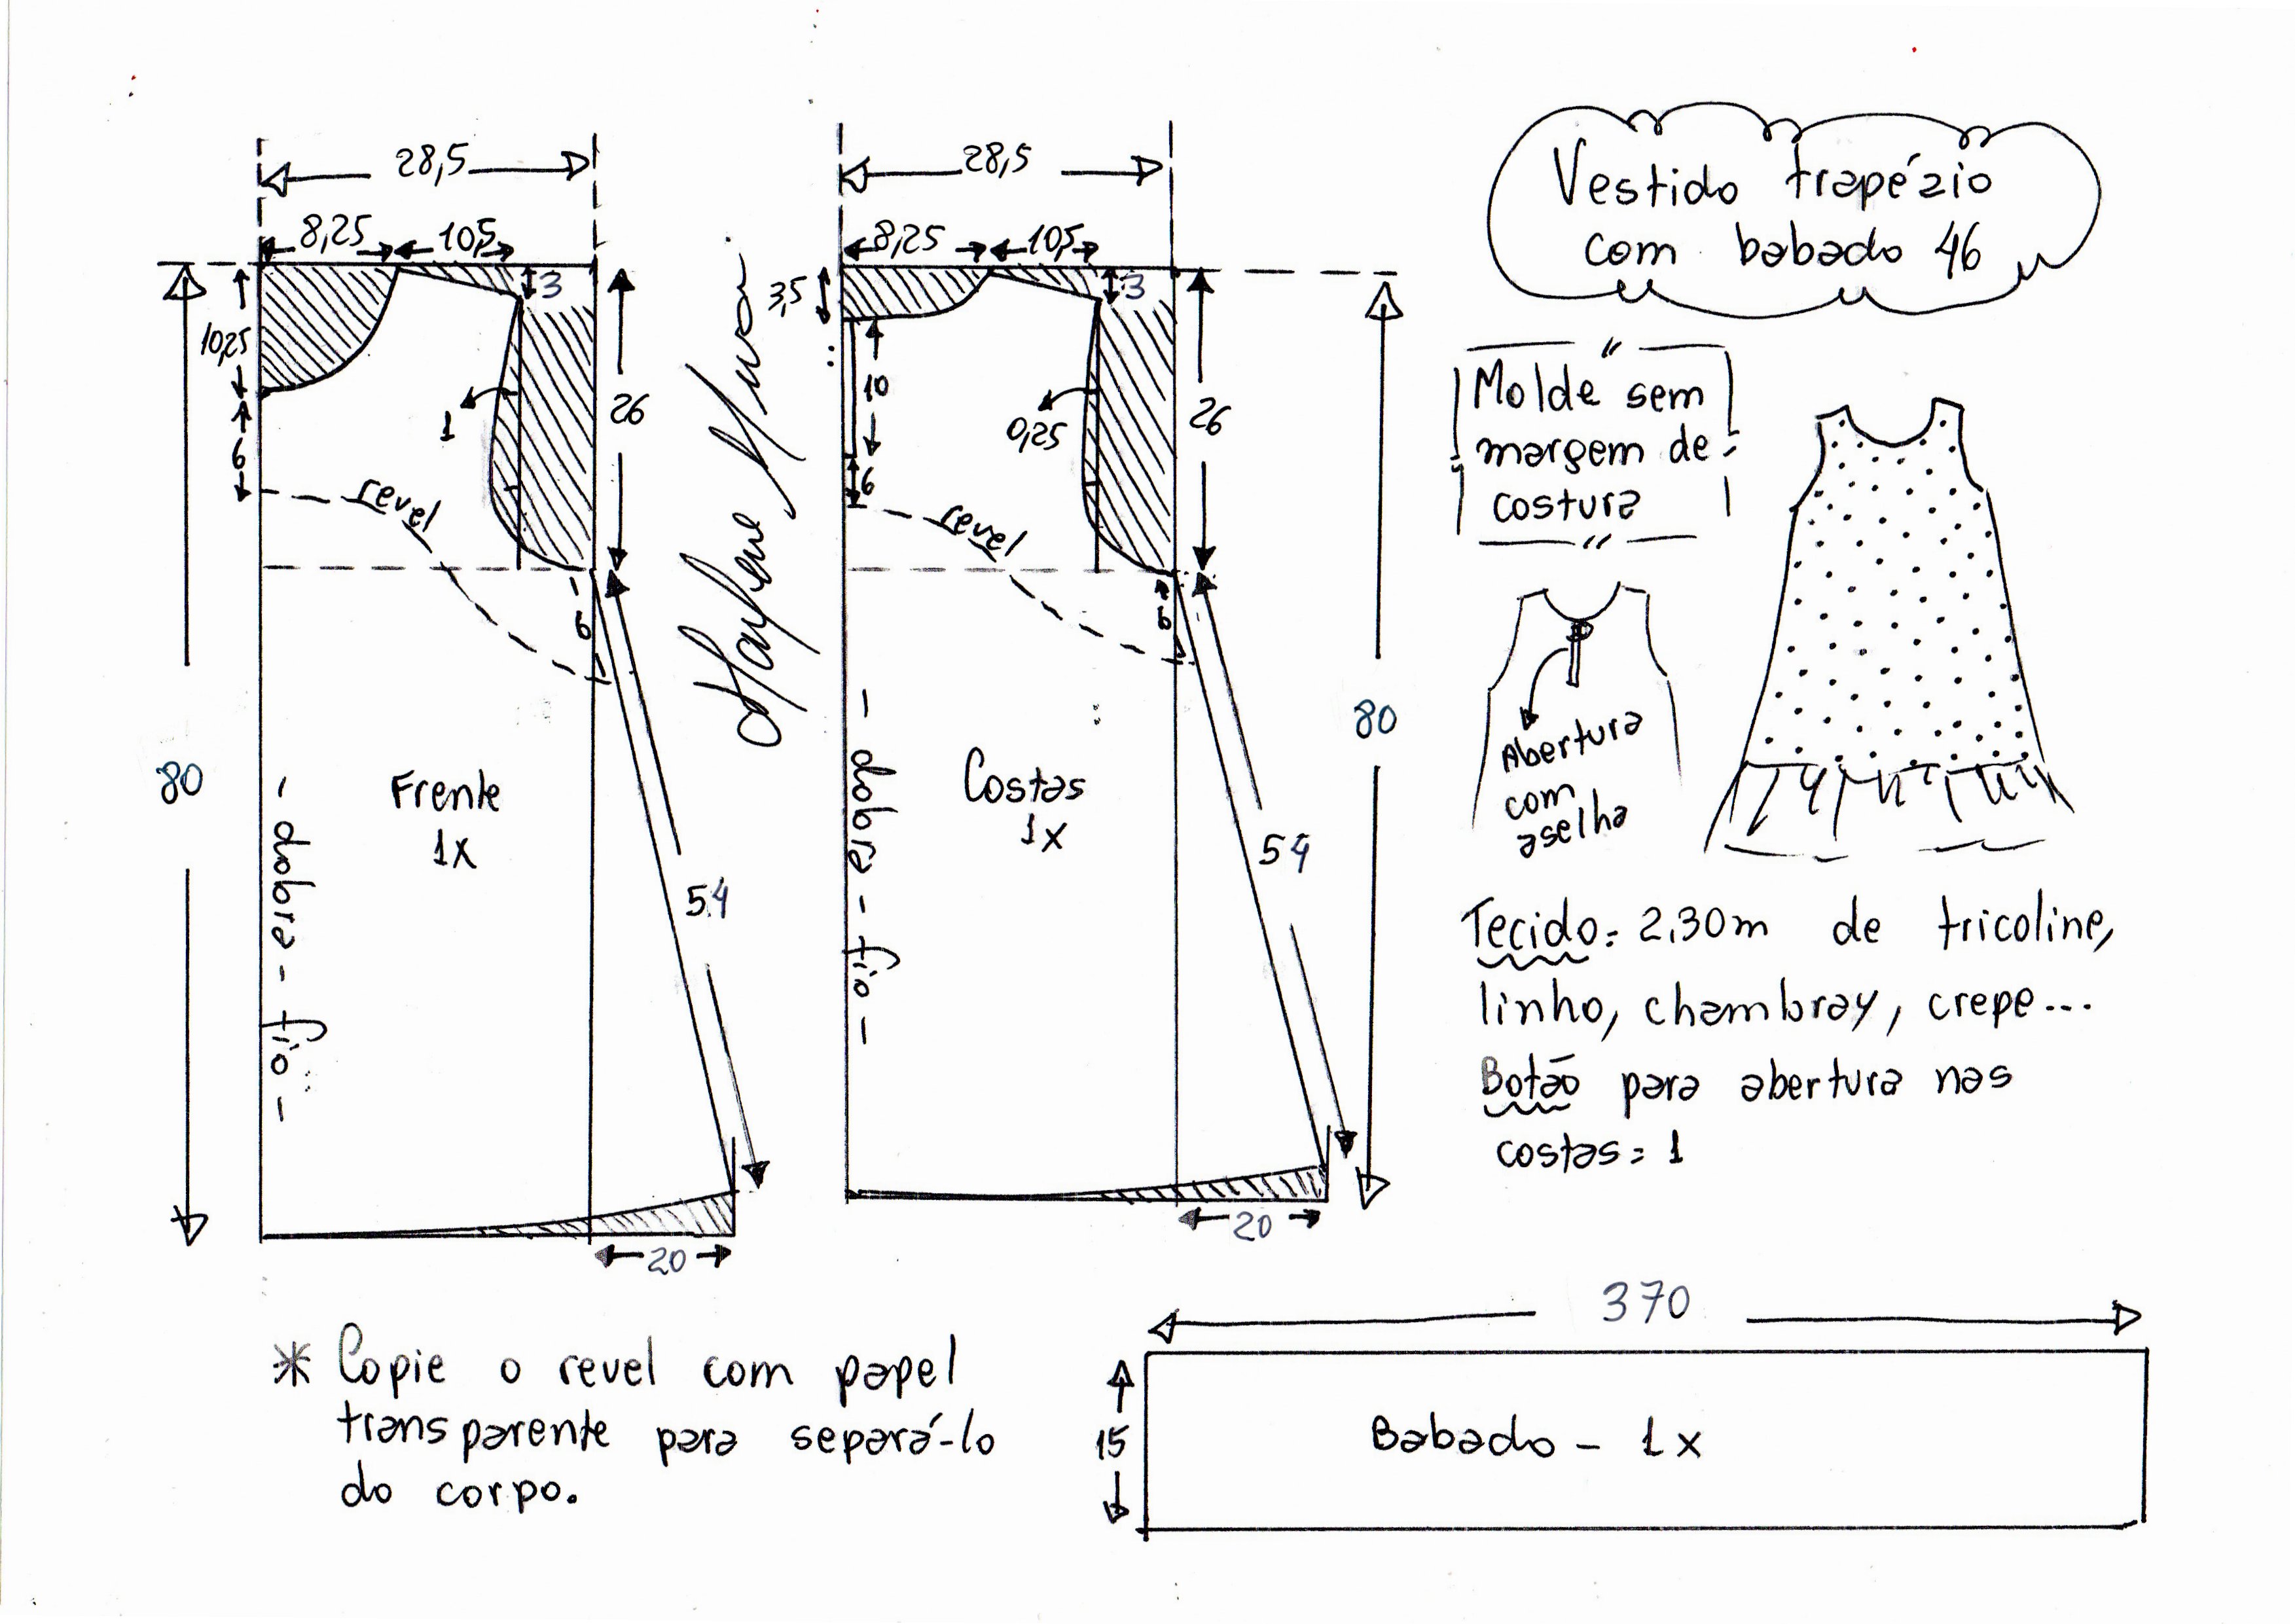 28,5
8,25
10,5
3
10,25
6
1
26
revel
6
80
Frente
1x
- dobra - fio -
54
20
28,5
8,25
10,5
3,5
3
10
6
0,25
26
revel
6
80
Costas
1x
- dobra - fio -
54
20
Vestido trapézio
com babado 46
Molde sem
margem de
costura
Abertura
com
aselha
Tecido: 2,30m de tricoline,
linho, chambray, crepe...
Botão para abertura nas
costas = 1
* Copie o revel com papel
transparente para separá-lo
do corpo.
370
15
Babado - 1x